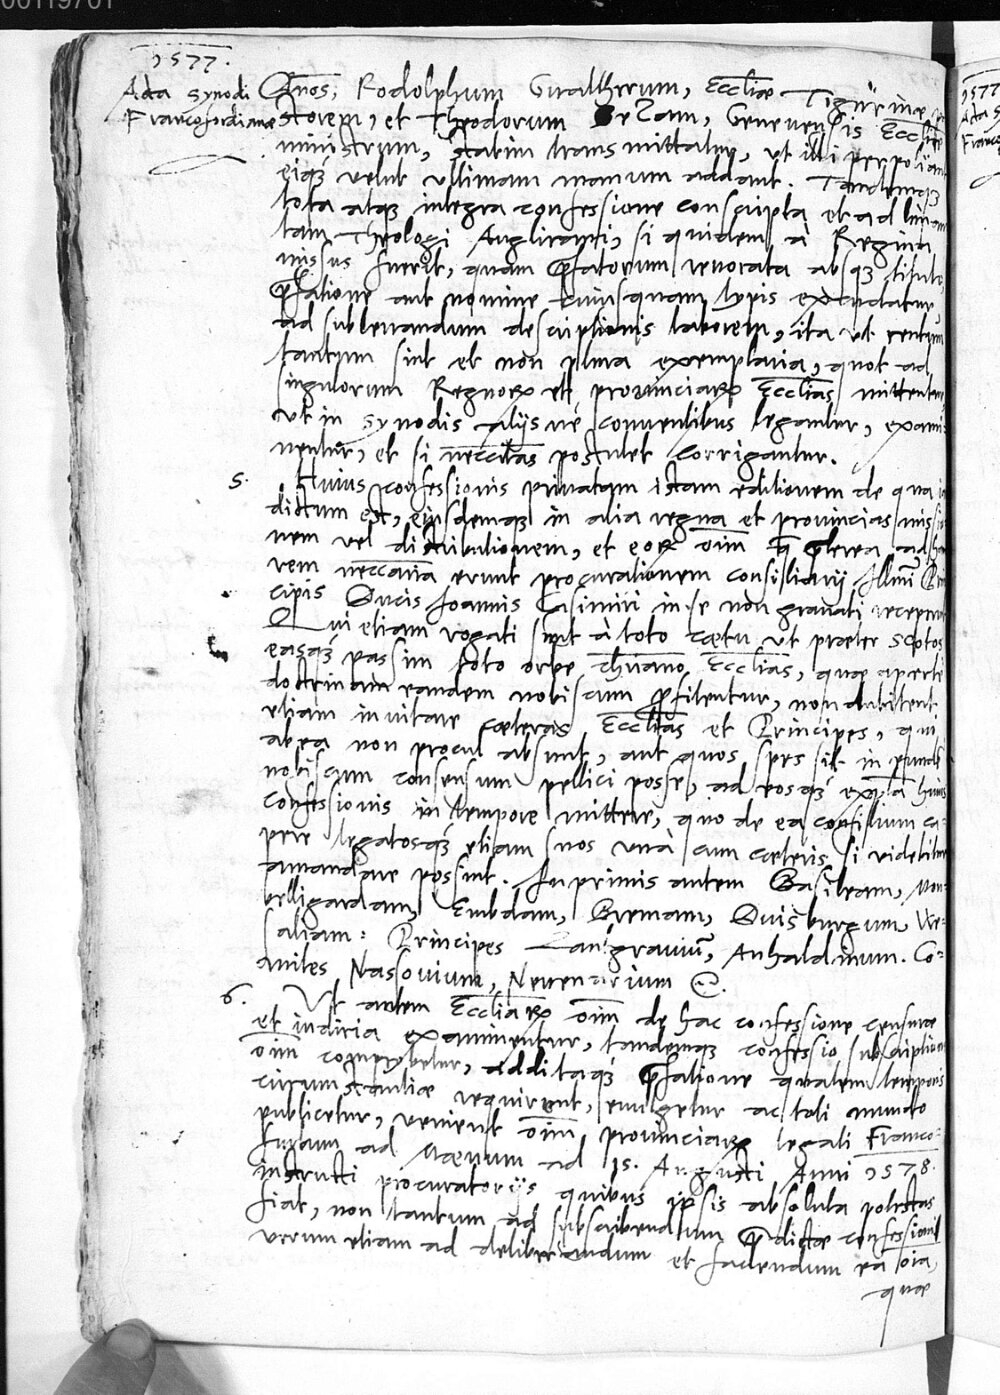 00119701
1577.
Acta Synodi
Francofordianae
Dnos, Rodolphum Gualtherum, Eccliae Tigurinae
storem, et Theodorum Bezam, Genevensis Eccliae
ministrum, statim transmittatur, ut illi perpoliant
eiqȝ velut ultimam manum addant. Tandemqȝ
tota atqȝ integra confessione conscripta et ad
tam Theologi Anglicani, si quidem à Regina
missus fuerit, quam pfatorum revocata absqȝ titulo,
pfatione aut nomine cuiusquam typis excudatur
ad sublevandum descriptionis laborem, ita ut centum
tantum sint et non plura exemplaria, quot ad
singulorum Regnorȝ et provinciarȝ Ecclias mittentur,
ut in synodis alijsve conventibus legantur, exami-
nentur, et si neccitas postulet corrigantur.
5. Huius confessionis privatam istam editionem de qua
dictum est, eiusdemqȝ in alia regna et provincias
nem vel distributionem, et eorȝ oim pterea ad
rem neccaria erunt procurationem consiliarij Illmi
cipis Ducis Joannis Casimiri in se non gravati
Qui etiam rogati sunt à toto coetu ut praeter
easqȝ passim toto orbe chriano Ecclias, quae aperte
doctrinam eandem nobiscum pfitentur, non dubitent
etiam invitare caeteras Ecclias et Principes, qui
ab ea non procul absunt, aut quos spes sit in
nobiscum consensum pellici posse, ad eosqȝ expla huius
confessionis in tempore mittere, quo de ea consilium ca-
pere legatosqȝ etiam suos unà cum caeteris si videbitur
amandare possint. Inprimis autem Basileam, Mon-
belligardam, Embdam, Bremam, Duisburgum, We-
saliam: Principes Lantgravium, Anhaldinum. Co-
mites Nassovium, Nevenarium
6. Ut autem Eccliarȝ oim de hac confessione censurae
et iudicia examinentur, tandemqȝ confessio subscriptione
oim comprobetur, additaqȝ pfatione qualem temporis
circumstantiae requirent, evulgetur ac toti mundo
publicetur, venient oim provinciarȝ legati Franco-
furtum ad Maenum ad 15. Augusti Anni 1578.
instructi procuratorijs quibus ipsis absoluta potestas
fiat, non tantum ad subscribendum pdictae confessioni
verum etiam ad deliberandum et faciendum ea oia,
quae
1577
Acta S
Franco